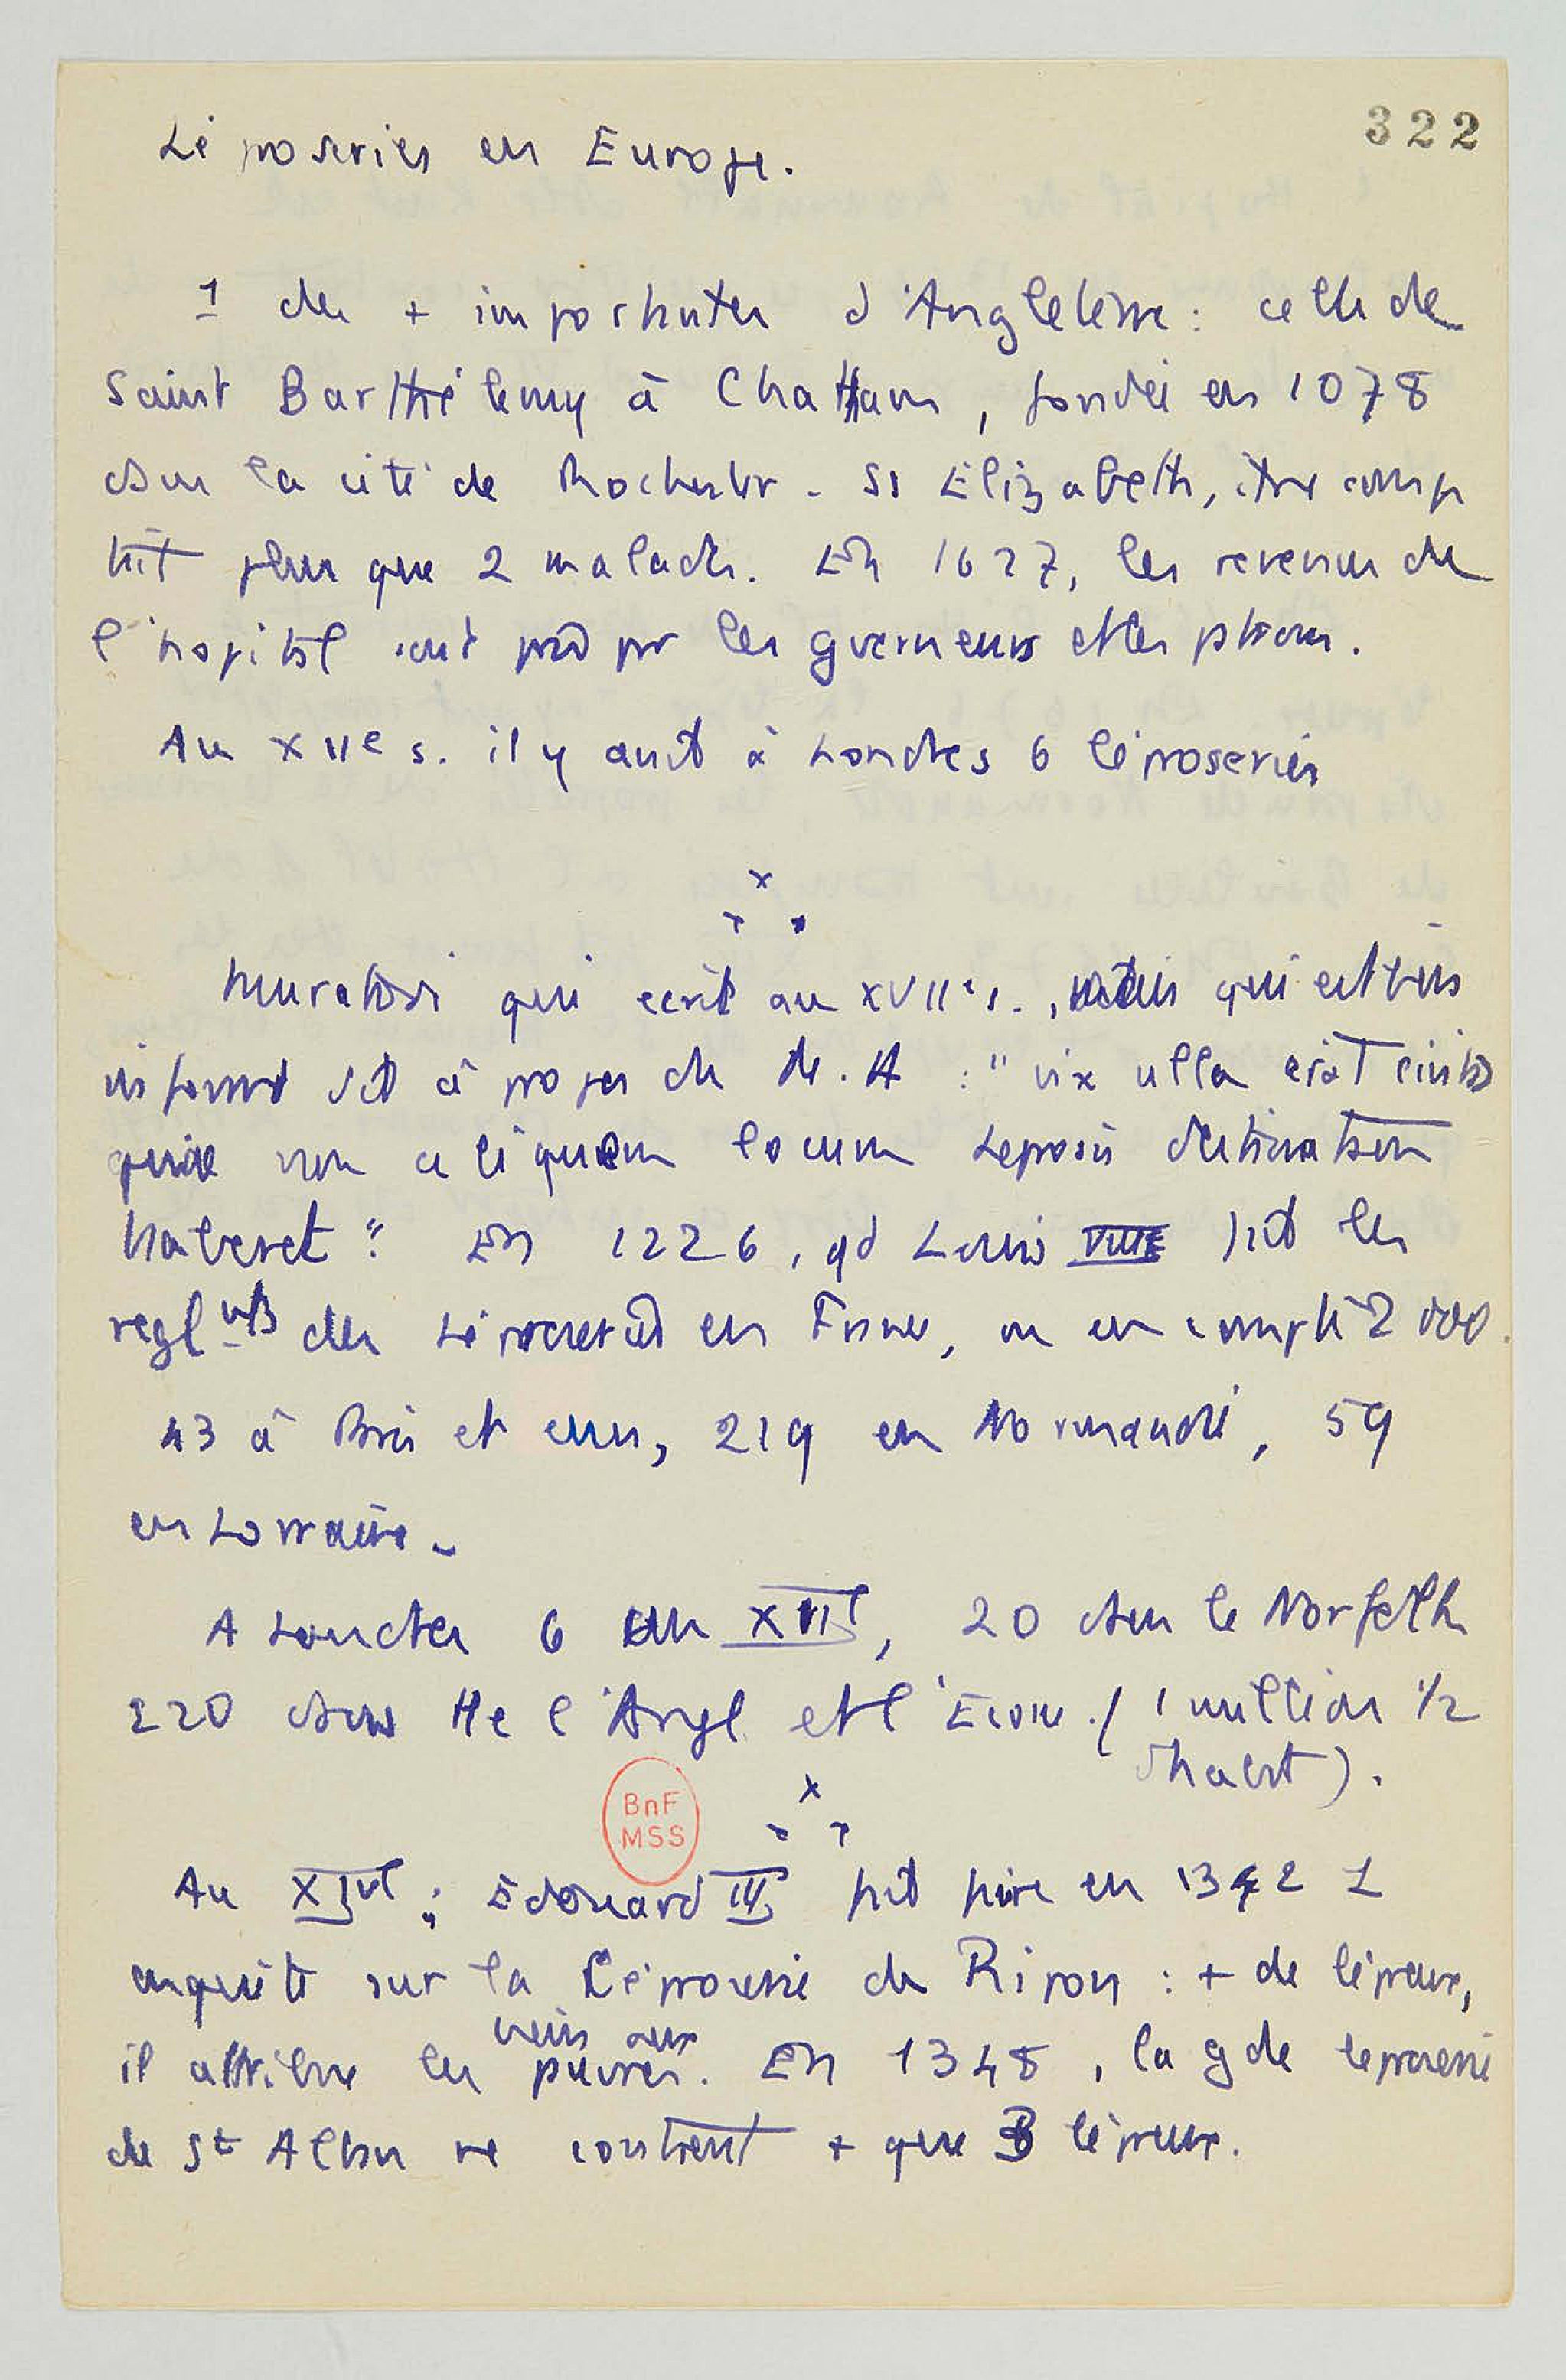 322
Léproseries en Europe.
1 des + importantes d'Angleterre : celle de
Saint Barthélemy à Chatham, fondée en 1078
dans la cité de Rochester. Ss Elizabeth, comp
tait plus que 2 malades. En 1627, les revenus de
l'hopital sont pr les gverneurs et les
Au XIIe s. il y avait à Londres 6 léproseries
x
x x
Muratori qui écrit au XVIIe s., mais qui est très
informé dit à propos du M.A : "vix ulla erat civitas
quae non aliquem locum Leprosis destinatum
haberet". En 1226, qd Louis VIII fit les
reglmts des Léproseries en France, on en compte 2 000.
43 à Paris et envs, 219 en Normandie, 59
en Lorraine.
A Londres 6 au XIIe, 20 dans le Norfolk
220 dans tte l'Angl. et l'Ecosse. (1 million 1/2
d'habit).
x
x x
BnF
MSS
Au XIVe ; Edouard III fait faire en 1342 1
enquête sur la Léproserie de Ripon : + de lépreux,
il attribue les biens aux pauvres. En 1348, la gde léproserie
de St Alban ne contient + que 3 lépreux.